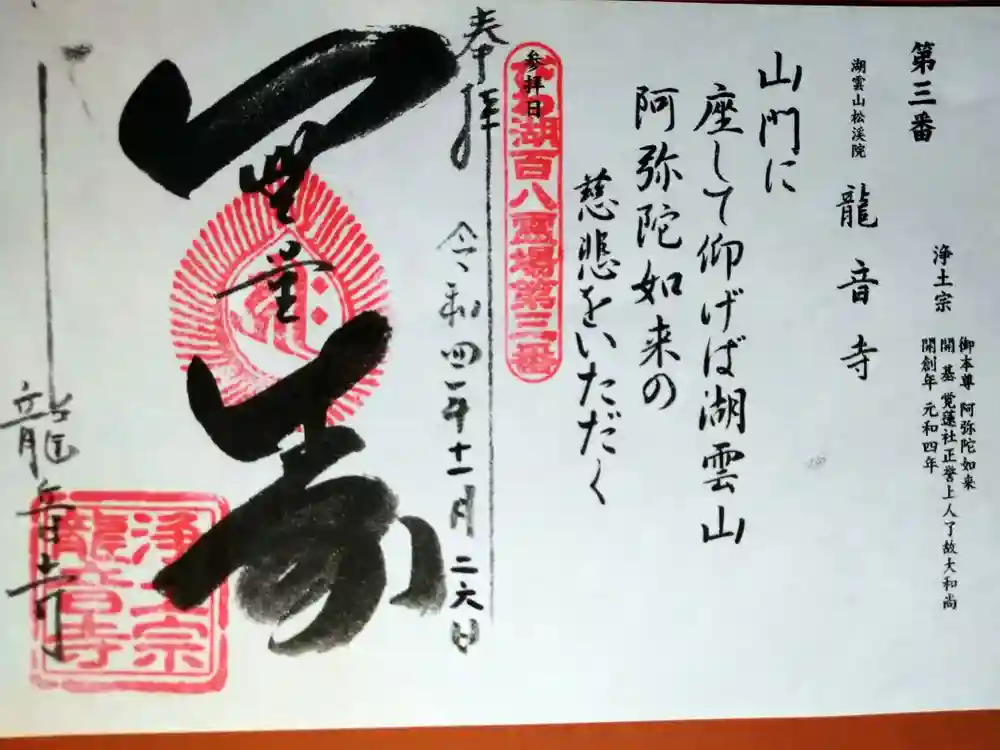 第三番
浄土宗
御本尊 阿弥陀如来
開基 覚蓮社正誉上人了故大和尚
開創年 元和四年
湖雲山松渓院
龍音寺
山門に
座して仰げば湖雲山
阿弥陀如来の
慈悲をいただく
参拝日
びわ湖百八霊場第三番
奉拝
令和四年十一月二六日
無量寿
龍音寺
浄土宗
龍音寺